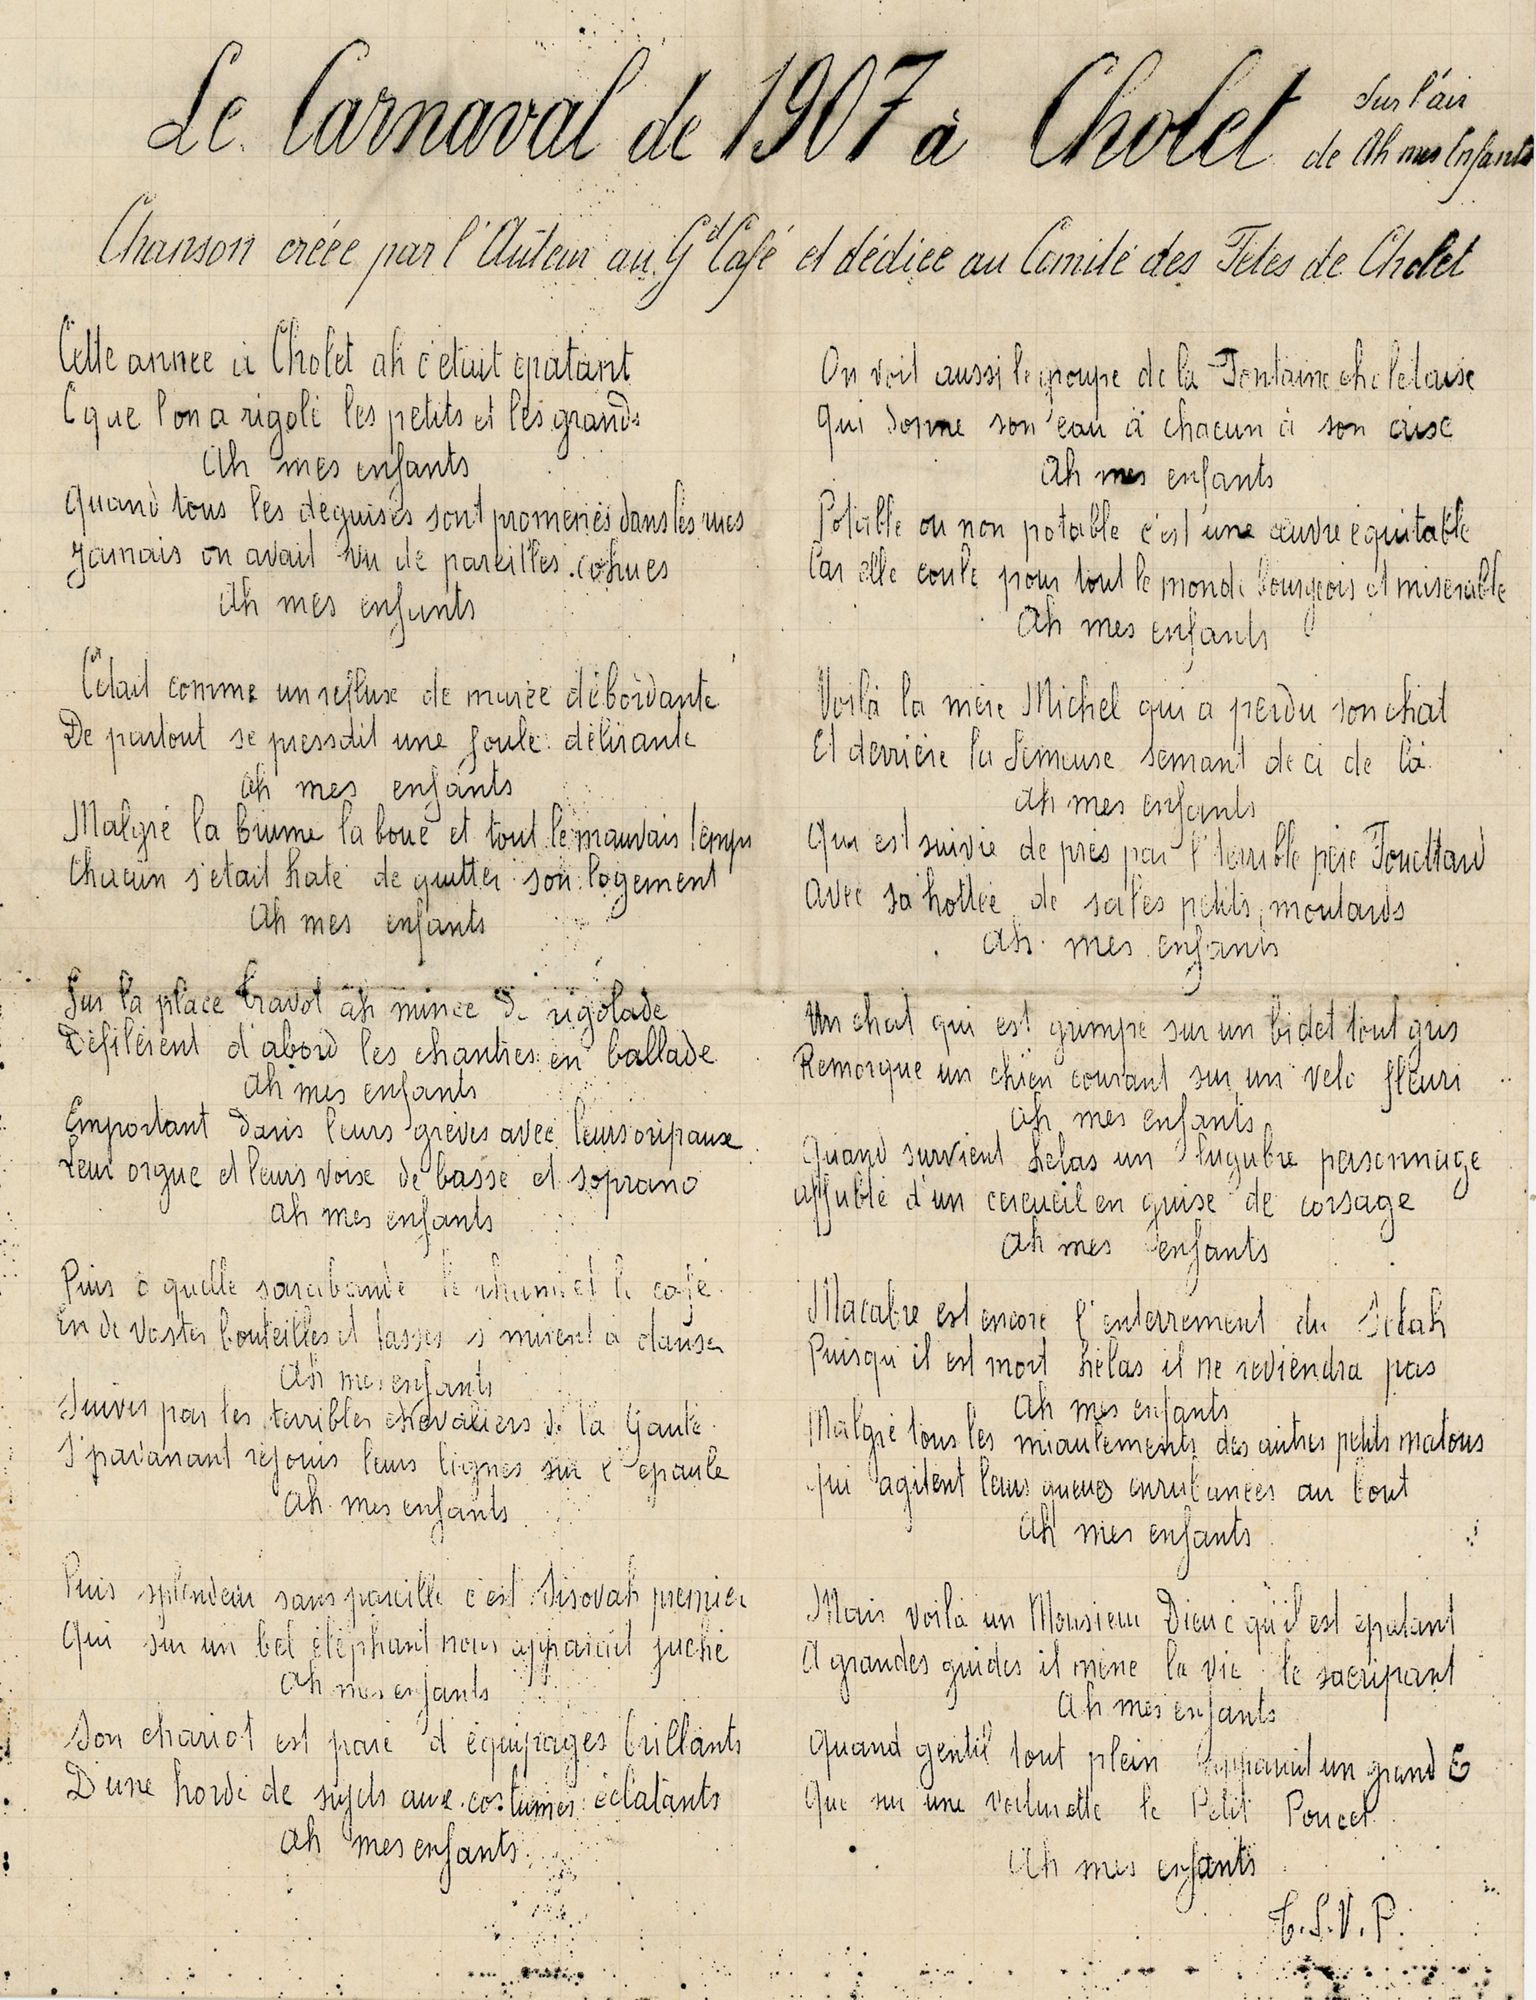 Le Carnaval de 1907 à Cholet
Sur l'air
de Ah mes Enfants
Chanson créée par l'Auteur au Gd Café et dédiée au Comité des Fêtes de Cholet
Cette année à Cholet ah c'était épatant
C que l'on a rigolé les petits et les grands
Ah mes enfants
Quand tous les déguisés sont promenés dans les rues
Jamais on avait vu de pareilles cohues
Ah mes enfants
C'était comme un reflux de marée débordante
De partout se pressait une foule délirante
Ah mes enfants
Malgré la brume la boue et tout le mauvais temps
Chacun s'était haté de quitter son logement
Ah mes enfants
Sur la place Travot ah mince de rigolade
Défilèrent d'abord les chantres en ballade
Ah mes enfants
Emportant dans leurs grèves avec leurs oripaux
Leur orgue et leurs voix de basse et soprano
Ah mes enfants
Puis o quelle sarabande le rhum et le café
En de vastes bouteilles et tasses s'mirent à danser
Ah mes enfants
Suivis par les terribles chevaliers de la Gaule
S'pavanant réjouis leurs lignes sur l'épaule
Ah mes enfants
Puis splendeur sans pareille c'est Sisovah premier
Qui sur un bel éléphant nous apparait juché
Ah mes enfants
Son chariot est paré d'équipages brillants
D'une horde de sujets aux costumes éclatants
Ah mes enfants
On voit aussi le groupe de la Fontaine choletaise
Qui donne son eau à chacun à son aise
Ah mes enfants
Potable ou non potable c'est une œuvre équitable
Car elle coule pour tout le monde bourgeois et misérable
Ah mes enfants
Voilà la mère Michel qui a perdu son chat
Et derrière la Semeuse semant de ci de là
Ah mes enfants
Qui est suivie de près par l'terrible père Fouettard
Avec sa hottée de sales petits moutards
Ah mes enfants
Un chat qui est grimpé sur un bidet tout gris
Remorque un chien courant sur un vélo fleuri
Ah mes enfants
Quand survient hélas un lugubre personnage
affublé d'un cercueil en guise de corsage
Ah mes enfants
Macabre est encore l'enterrement du
Puisqu'il est mort hélas il ne reviendra pas
Ah mes enfants
Malgré tous les miaulements des autres petits matous
qui agitent leurs queues enrubanées au bout
Ah mes enfants
Mais voilà un Monsieur Dieu c qu'il est épatant
A grandes guides il mène la vie le sacripant
Ah mes enfants
Quand gentil tout plein apparait un grand E
Que sur une voiturette le Petit Poucet
Ah mes enfants
T.S.V.P.